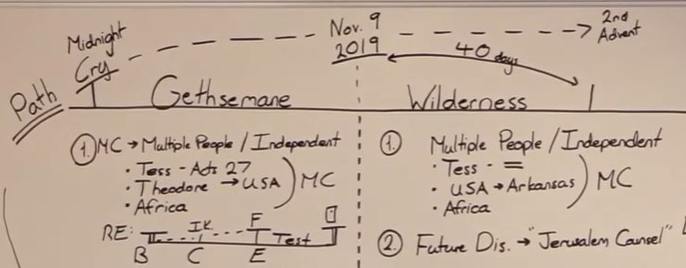 Midnight
Cry
Nov. 9
2019
2nd
Advent
40 days
Path
Gethsemane
Wilderness
① MC → Multiple People / Independent
• Tess - Acts 27
• Theodore → USA
• Africa
MC
RE:
I.K.
F
Test
B
C
E
① Multiple People / Independent
• Tess - =
• USA → Arkansas
• Africa
MC
② Future Dis. → "Jerusalem Counsel"